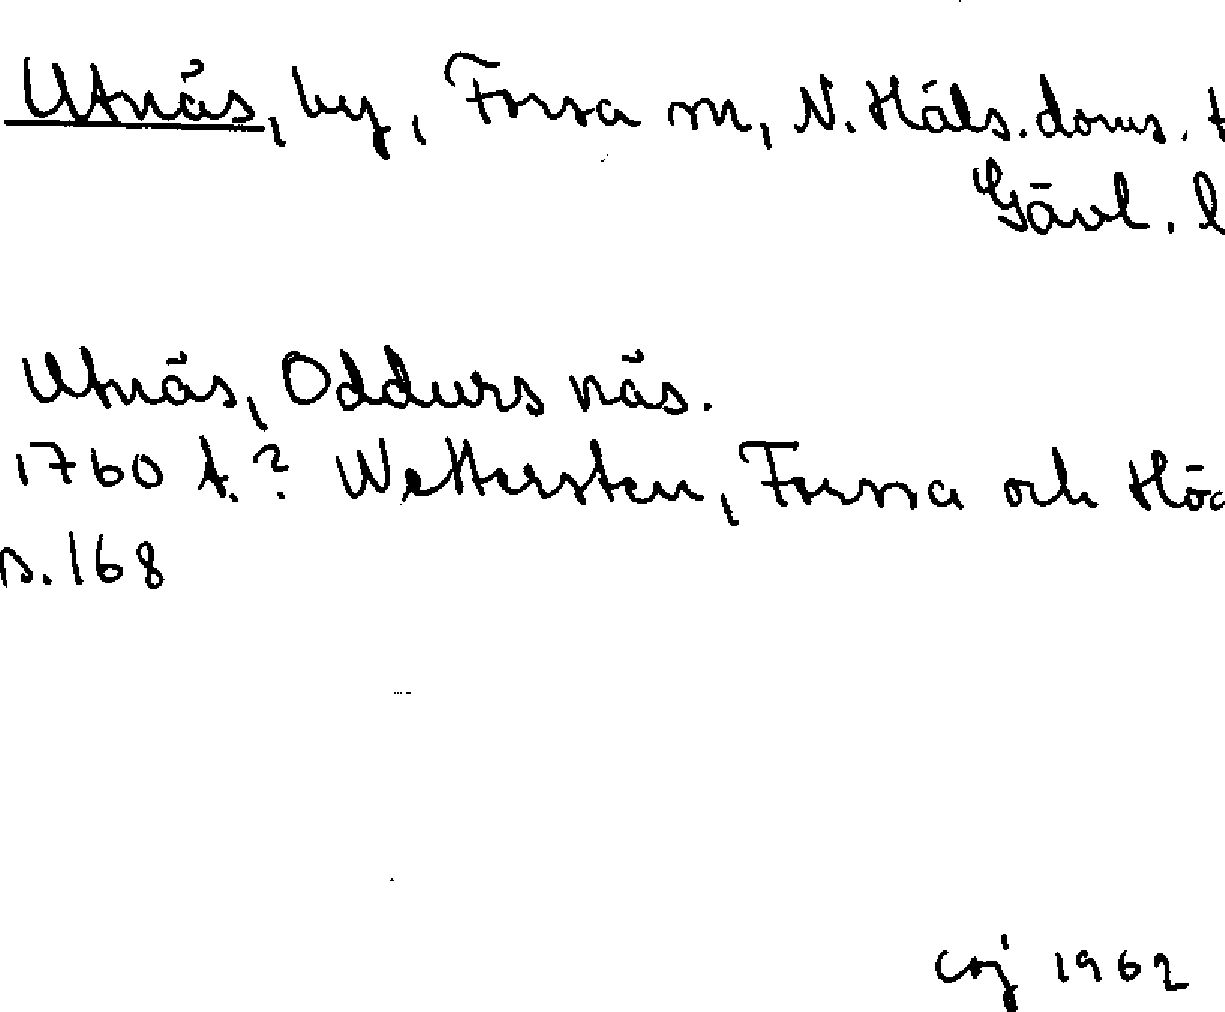 Utnäs, by, Forsa sn, N. Häls. doms. t
Gävl. l
Utnäs, Oddurs näs.
1760 t.? Wettersten, Forssa och Hög
s. 168
coj 1962